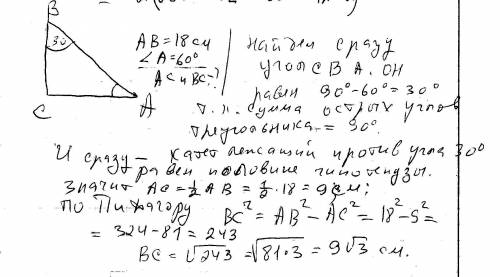 B
30
C
A
AB = 18 см
∠A = 60°
AC и BC - ?
Найдем сразу
угол CBA. Он
равен 90° - 60° = 30°
т.к. сумма острых углов
треугольника = 90°.
И сразу - катет лежащий против угла 30°
равен половине гипотенузы.
Значит AC = ½ AB = ½ · 18 = 9 см;
По Пифагору BC² = AB² - AC² = 18² - 9² =
= 324 - 81 = 243
BC = √243 = √81·3 = 9√3 см.